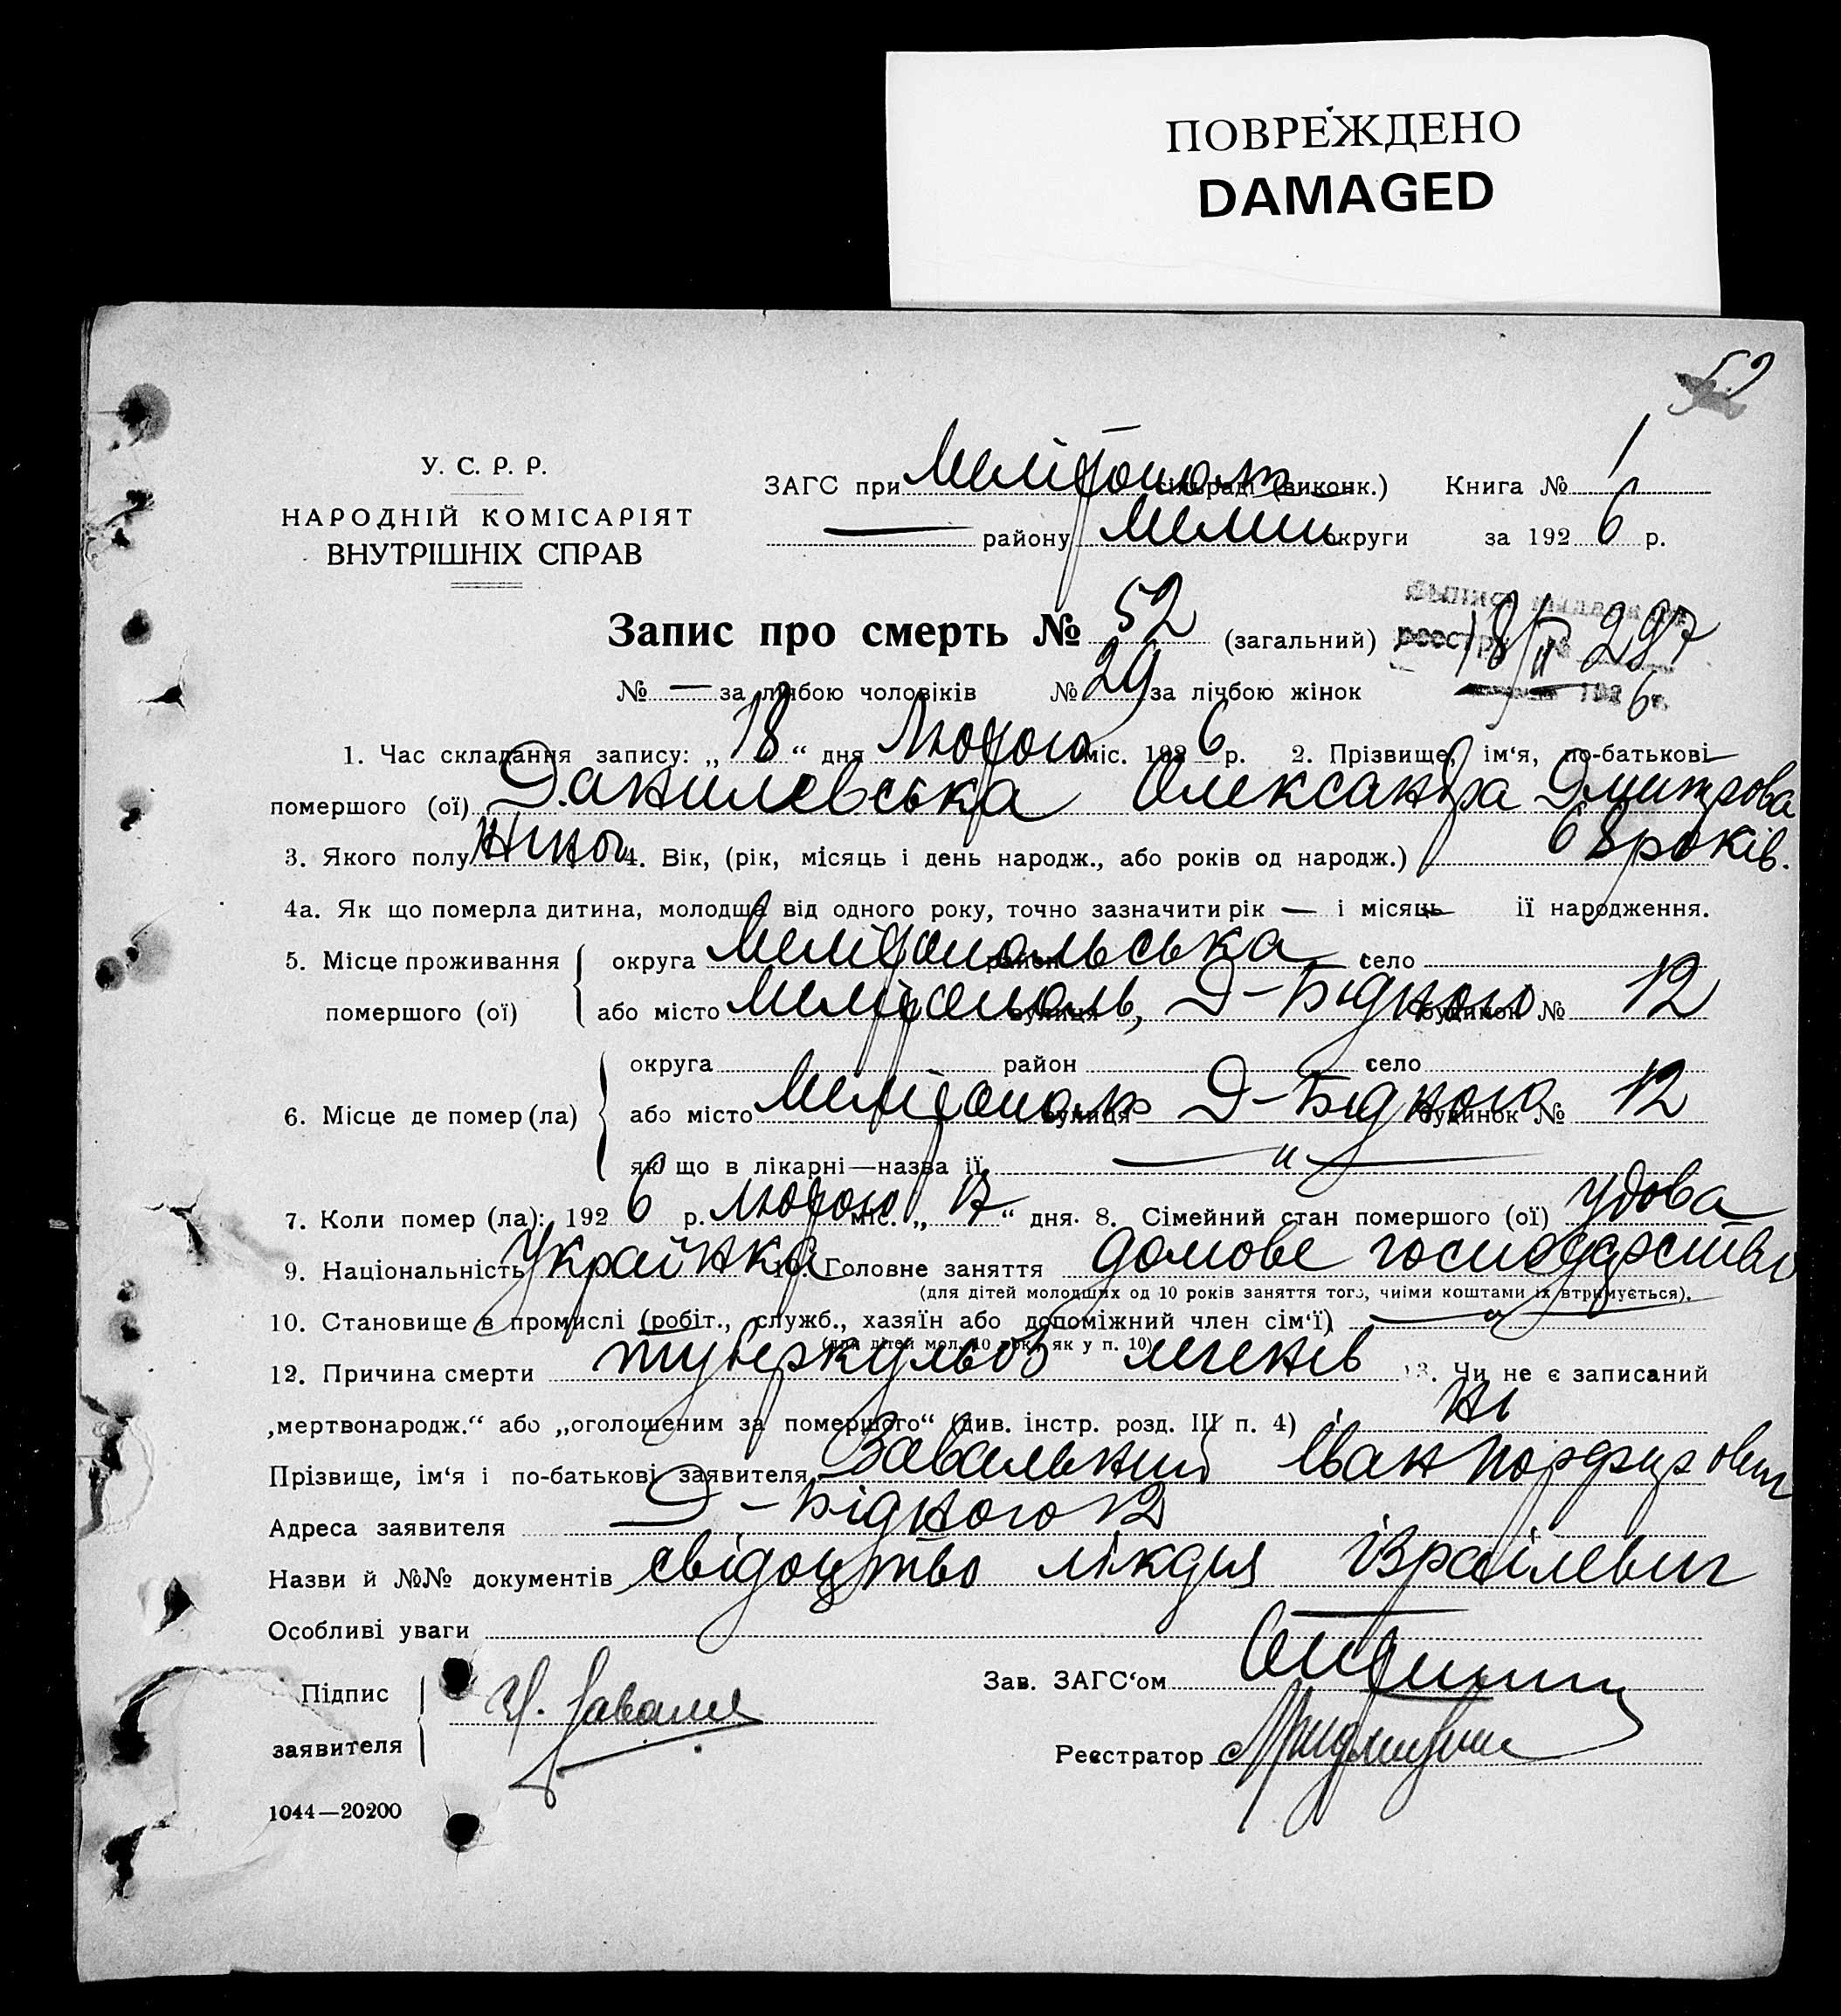 ПОВРЕЖДЕНО
DAMAGED
52
У. С. Р. Р.
НАРОДНІЙ КОМІСАРІЯТ
ВНУТРІШНІХ СПРАВ
ЗАГС при Мелітополь сільраді (виконк.) Книга № 1
— району Мелит округи за 1926 р.
Запис про смерть № 52 (загальний)
реєстру 18/II 297
№ — за лічбою чоловіків № 29 за лічбою жінок
1926 г.
1. Час складання запису: „18“ дня Лютого міс. 1926 р. 2. Прізвище, ім‘я, по-батькові
помершого (ої) Данилевська Олександра Дмитрова
3. Якого полу жіноч 4. Вік, (рік, місяць і день народж., або років од народж.) 68 років.
4а. Як що померла дитина, молодша від одного року, точно зазначити рік — і місяць — її народження.
5. Місце проживання помершого (ої)
округа Мелітопольська район село
або місто Мелітополь, вулиця Д-Бідного будинок № 12
6. Місце де помер (ла)
округа район село
або місто Мелітополь вулиця Д-Бідного будинок № 12
як що в лікарні—назва її — „ —
7. Коли помер (ла): 1926 р. лютого міс. „17“ дня. 8. Сімейний стан помершого (ої) удова
9. Національність Українка 10. Головне заняття домове господарство
(для дітей молодших од 10 років заняття того, чиїми коштами їх втримується).
10. Становище в промислі (робіт., служб., хазяїн або допоміжний член сім‘ї) — „ —
(для дітей мол. 10 рок. як у п. 10)
12. Причина смерти туберкульоз легенів 13. Чи не є записаний
„мертвонародж.“ або „оголошеним за помершого“ (див. інстр. розд. III п. 4) ні
Прізвище, ім‘я і по-батькові заявителя Завальний Іван Порфирович
Адреса заявителя Д-Бідного 12
Назви й №№ документів свідоцтво лікаря Ізраілевич
Особливі уваги
Підпис заявителя
Зав. ЗАГС‘ом
Реєстратор
1044—20200